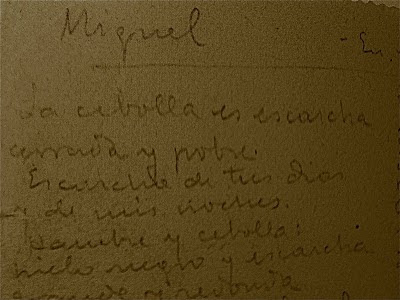 Miguel
- En.
La cebolla es escarcha
cerrada y pobre.
Escarcha de tus días
y de mis noches.
Hambre y cebolla:
hielo negro y escarcha
grande y redonda.